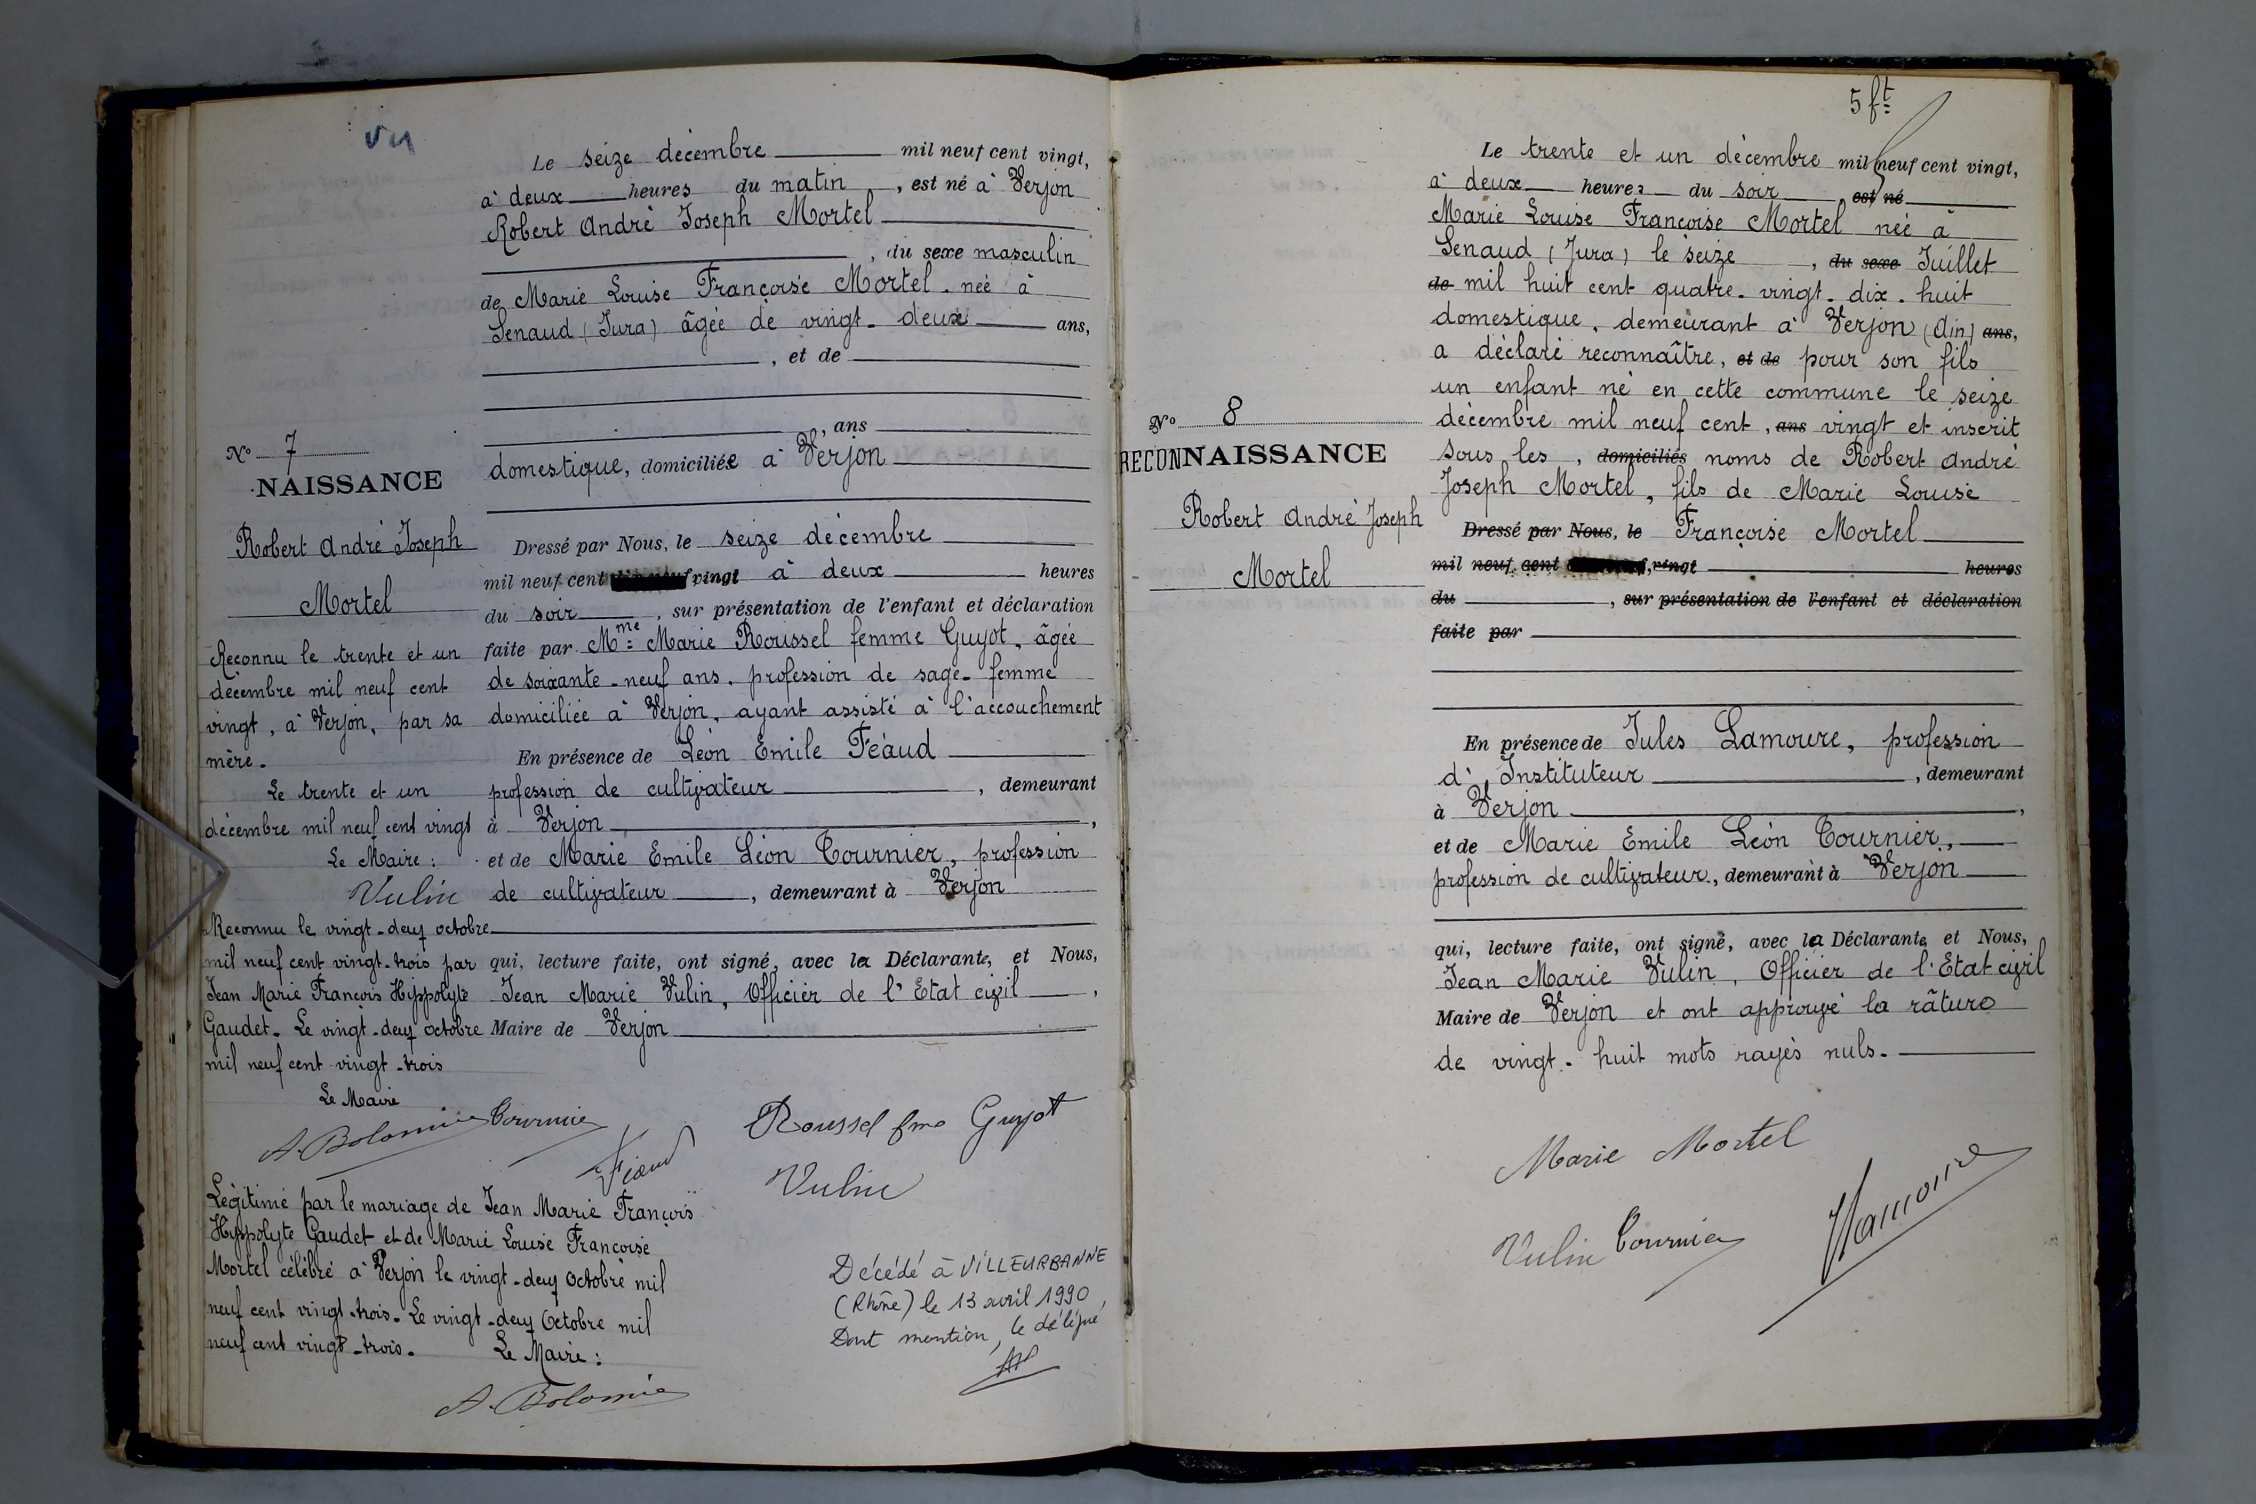 vu
Le seize décembre mil neuf cent vingt,
à deux heures du matin, est né à Verjon
Robert André Joseph Mortel
, du sexe masculin
de Marie Louise Françoise Mortel. née à
Senaud (Jura) âgée de vingt-deux ans,
, et de
, ans
domestique, domiciliée à Verjon
N° 7
NAISSANCE
Robert André Joseph
Mortel
Dressé par Nous, le seize décembre
mil neuf cent vingt à deux heures
du soir, sur présentation de l'enfant et déclaration
faite par Mme Marie Roussel femme Guyot, âgée
de soixante-neuf ans, profession de sage-femme
domiciliée à Verjon, ayant assisté à l'accouchement
En présence de Léon Emile Féaud
profession de cultivateur, demeurant
à Verjon,
et de Marie Emile Léon Tournier, profession
de cultivateur, demeurant à Verjon
qui, lecture faite, ont signé, avec la Déclarante, et Nous,
Jean Marie Vulin, Officier de l'Etat civil,
Maire de Verjon
Reconnu le trente et un
décembre mil neuf cent
vingt, à Verjon, par sa
mère.
Le trente et un
décembre mil neuf cent vingt
Le Maire :
Vulin
Reconnu le vingt-deux octobre
mil neuf cent vingt-trois par
Jean Marie François Hippolyte
Gaudet. Le vingt-deux octobre
mil neuf cent vingt-trois
Le Maire
A. Bolomie
Tournier
Féaud
Roussel fme Guyot
Vulin
Légitimé par le mariage de Jean Marie François
Hyppolyte Gaudet et de Marie Louise Françoise
Mortel célébré à Verjon le vingt-deux octobre mil
neuf cent vingt-trois. Le vingt-deux Octobre mil
neuf cent vingt-trois. Le Maire :
A. Bolomie
Décédé à VILLEURBANNE
(Rhône) le 13 avril 1990
Dont mention, le délégué
5 ft
Le trente et un décembre mil neuf cent vingt,
à deux heures du soir, est né
Marie Louise Françoise Mortel née à
Senaud (Jura) le seize, du sexe Juillet
de mil huit cent quatre-vingt-dix-huit
domestique, demeurant à Verjon (Ain) ans,
a déclaré reconnaître, et de pour son fils
un enfant né en cette commune le seize
décembre mil neuf cent, ans vingt et inscrit
sous les, domiciliés noms de Robert André
Joseph Mortel, fils de Marie Louise
Dressé par Nous, le Françoise Mortel
mil neuf cent vingt heures
du, sur présentation de l'enfant et déclaration
faite par
N° 8
RECONNAISSANCE
Robert André Joseph
Mortel
En présence de Jules Lamoure, profession
d'Instituteur, demeurant
à Verjon,
et de Marie Emile Léon Tournier,
profession de cultivateur, demeurant à Verjon
qui, lecture faite, ont signé, avec la Déclarante et Nous,
Jean Marie Vulin, Officier de l'Etat civil
Maire de Verjon et ont approuvé la râture
de vingt-huit mots rayés nuls.
Marie Mortel
Vulin Tournier
Lamoure